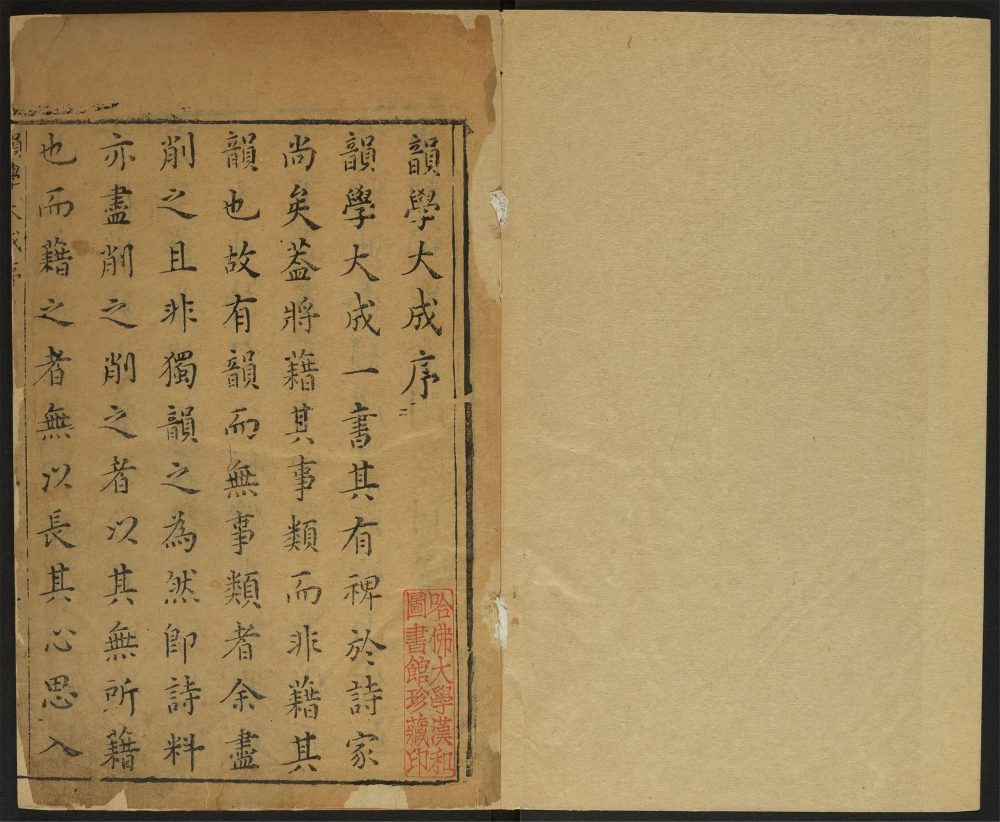 韻學大成序
韻學大成一書其有裨於詩家
尚矣葢將藉其事類而非藉其
韻也故有韻而無事類者余盡
削之且非獨韻之為然即詩料
亦盡削之削之者以其無所藉
也而藉之者無以長其心思入
韻學大成序
哈佛大學漢和
圖書館珍藏印